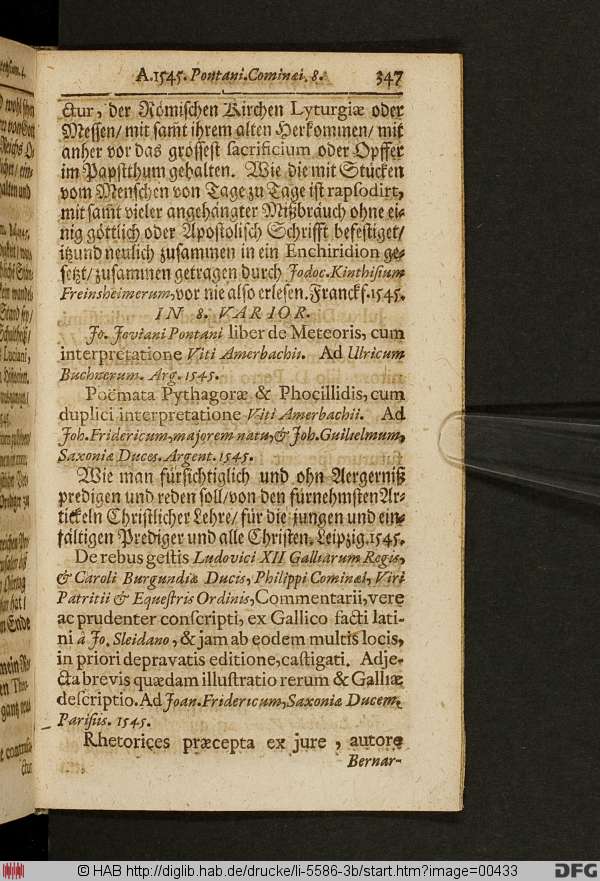 A. 1545. Pontani. Cominæi. 8. 347
ctur, der Römischen Kirchen Lyturgiæ oder
Messen/ mit samt ihrem alten Herkommen/ mit
anher vor das grössest sacrificium oder Opffer
im Papstthum gehalten. Wie die mit Stücken
vom Menschen von Tage zu Tage ist rapsodirt,
mit samt vieler angehängter Mißbräuch ohne ei-
nig göttlich oder Apostolisch Schrifft befestiget/
itzund neulich zusammen in ein Enchiridion ge-
setzt/ zusammen getragen durch Jodoc. Kinthisium
Freinsheimerum, vor nie also erlesen. Franckf. 1545.
IN 8. VARIOR.
Jo. Joviani Pontani liber de Meteoris, cum
interpretatione Viti Amerbachii. Ad Ulricum
Buchnerum. Arg. 1545.
Poëmata Pythagoræ & Phocillidis, cum
duplici interpretatione Viti Amerbachii. Ad
Joh. Fridericum, majorem natu, & Joh. Guilielmum,
Saxoniæ Duces. Argent. 1545.
Wie man fürsichtiglich und ohn Aergerniß
predigen und reden soll/ von den fürnehmsten Ar-
tickeln Christlicher Lehre/ für die jungen und ein-
fältigen Prediger und alle Christen. Leipzig. 1545.
De rebus gestis Ludovici XII Galliarum Regis,
& Caroli Burgundiæ Ducis, Philippi Cominæi, Viri
Patritii & Equestris Ordinis, Commentarii, vere
ac prudenter conscripti, ex Gallico facti lati-
ni à Jo. Sleidano, & jam ab eodem multis locis,
in priori depravatis editione, castigati. Adje-
cta brevis quædam illustratio rerum & Galliæ
descriptio. Ad Joan. Fridericum, Saxoniæ Ducem.
Parisiis. 1545.
Rhetorices præcepta ex jure, autore
Bernar-
© HAB http://diglib.hab.de/drucke/li-5586-3b/start.htm?image=00433
DFG